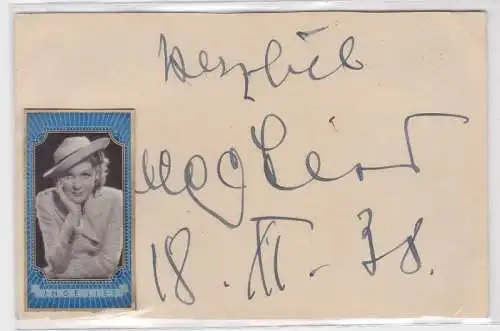 Herzlich
Inge List
18. XI. 38.
INGE LIST